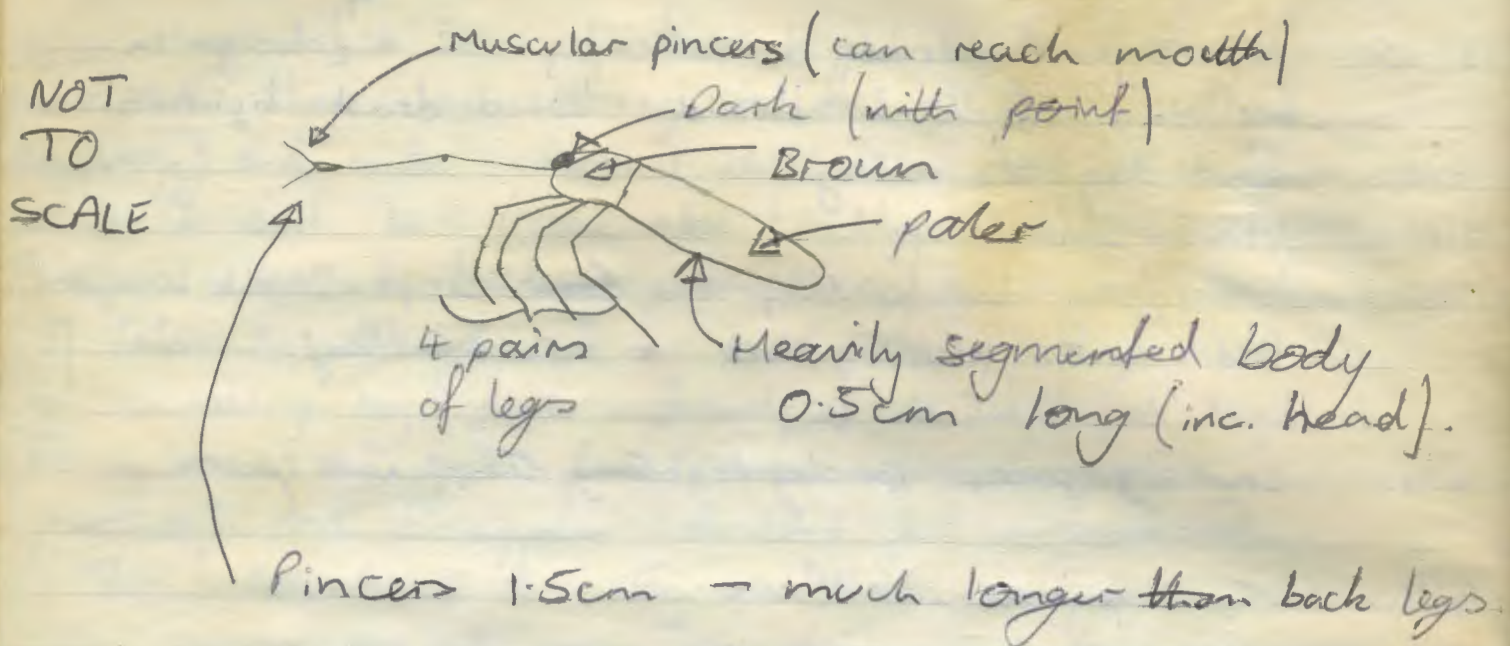 Muscular pincers (can reach mouth)
NOT
TO
SCALE
Dark (with point)
Brown
paler
4 pairs
of legs
Heavily segmented body
0.5cm long (inc. head).
Pincers 1.5cm - much longer than back legs.